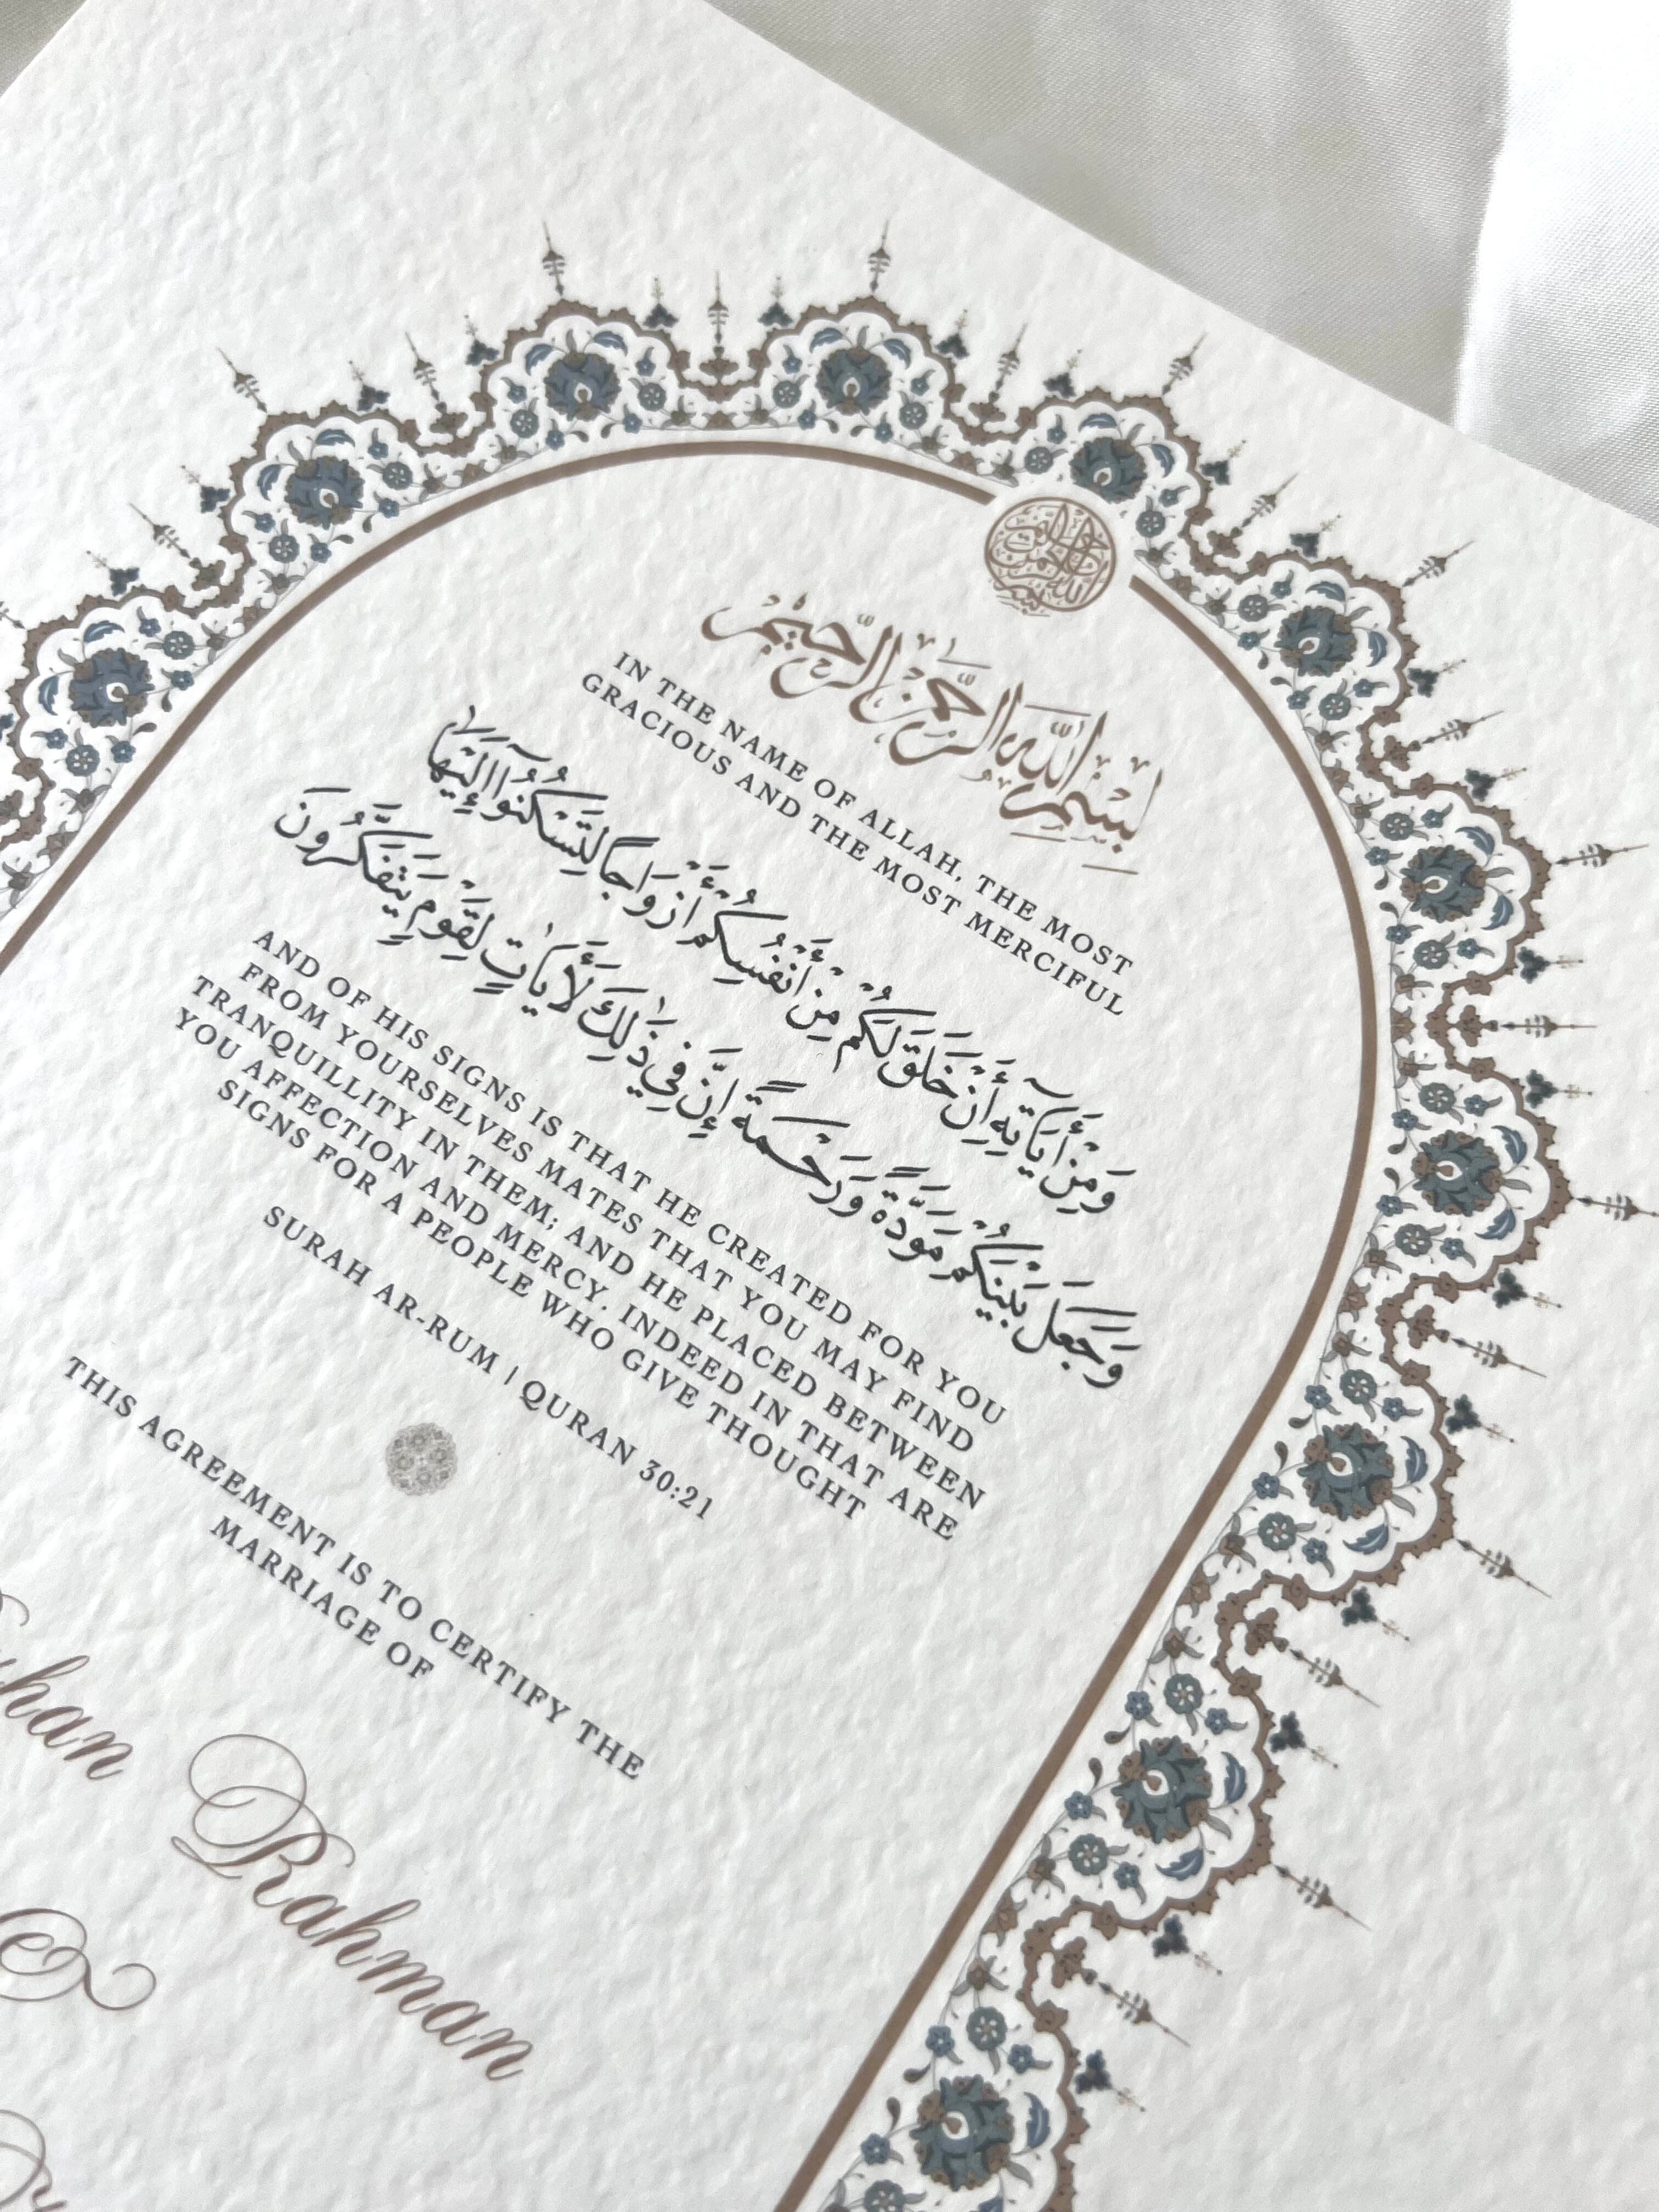 بِسْمِ اللَّهِ الرَّحْمَٰنِ الرَّحِيمِ
IN THE NAME OF ALLAH, THE MOST
GRACIOUS AND THE MOST MERCIFUL
وَمِنْ أَيَاتِهِ أَنْ خَلَقَ لَكُمْ مِنْ أَنْفُسِكُمْ أَزْوَاجًا لِتَسْكُنُوٓا إِلَيْهَا
وَجَعَلَ بَيْنَكُمْ مَوَدَّةً وَرَحْمَةً إِنَّ فِي ذَٰلِكَ لَأَيَاتٍ لِقَوْمٍ يَتَفَكَّرُونَ
AND OF HIS SIGNS IS THAT HE CREATED FOR YOU
FROM YOURSELVES MATES THAT YOU MAY FIND
TRANQUILLITY IN THEM; AND HE PLACED BETWEEN
YOU AFFECTION AND MERCY. INDEED IN THAT ARE
SIGNS FOR A PEOPLE WHO GIVE THOUGHT
SURAH AR-RUM | QURAN 30:21
THIS AGREEMENT IS TO CERTIFY THE
MARRIAGE OF
Rahman
&